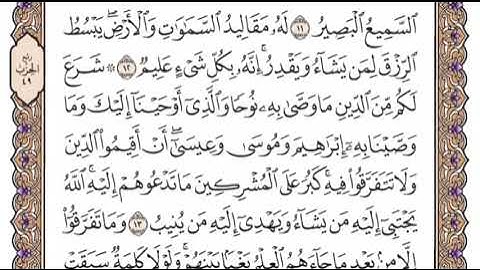 ٱلسَّمِيعُ ٱلْبَصِيرُ ١١ لَهُۥ مَقَالِيدُ ٱلسَّمَٰوَٰتِ وَٱلْأَرْضِۖ يَبْسُطُ
ٱلرِّزْقَ لِمَن يَشَآءُ وَيَقْدِرُۚ إِنَّهُۥ بِكُلِّ شَىْءٍ عَلِيمٌ ١٢ ۞ شَرَعَ
لَكُم مِّنَ ٱلدِّينِ مَا وَصَّىٰ بِهِۦ نُوحًا وَٱلَّذِىٓ أَوْحَيْنَآ إِلَيْكَ وَمَا
وَصَّيْنَا بِهِۦٓ إِبْرَٰهِيمَ وَمُوسَىٰ وَعِيسَىٰٓۖ أَنْ أَقِيمُوا۟ ٱلدِّينَ
وَلَا تَتَفَرَّقُوا۟ فِيهِۚ كَبُرَ عَلَى ٱلْمُشْرِكِينَ مَا تَدْعُوهُمْ إِلَيْهِۚ ٱللَّهُ
يَجْتَبِىٓ إِلَيْهِ مَن يَشَآءُ وَيَهْدِىٓ إِلَيْهِ مَن يُنِيبُ ١٣ وَمَا تَفَرَّقُوٓا۟
إِلَّا مِنۢ بَعْدِ مَا جَآءَهُمُ ٱلْعِلْمُ بَغْيًۢا بَيْنَهُمْۚ وَلَوْلَا كَلِمَةٌ سَبَقَتْ
ربع
الحزب
٤٩